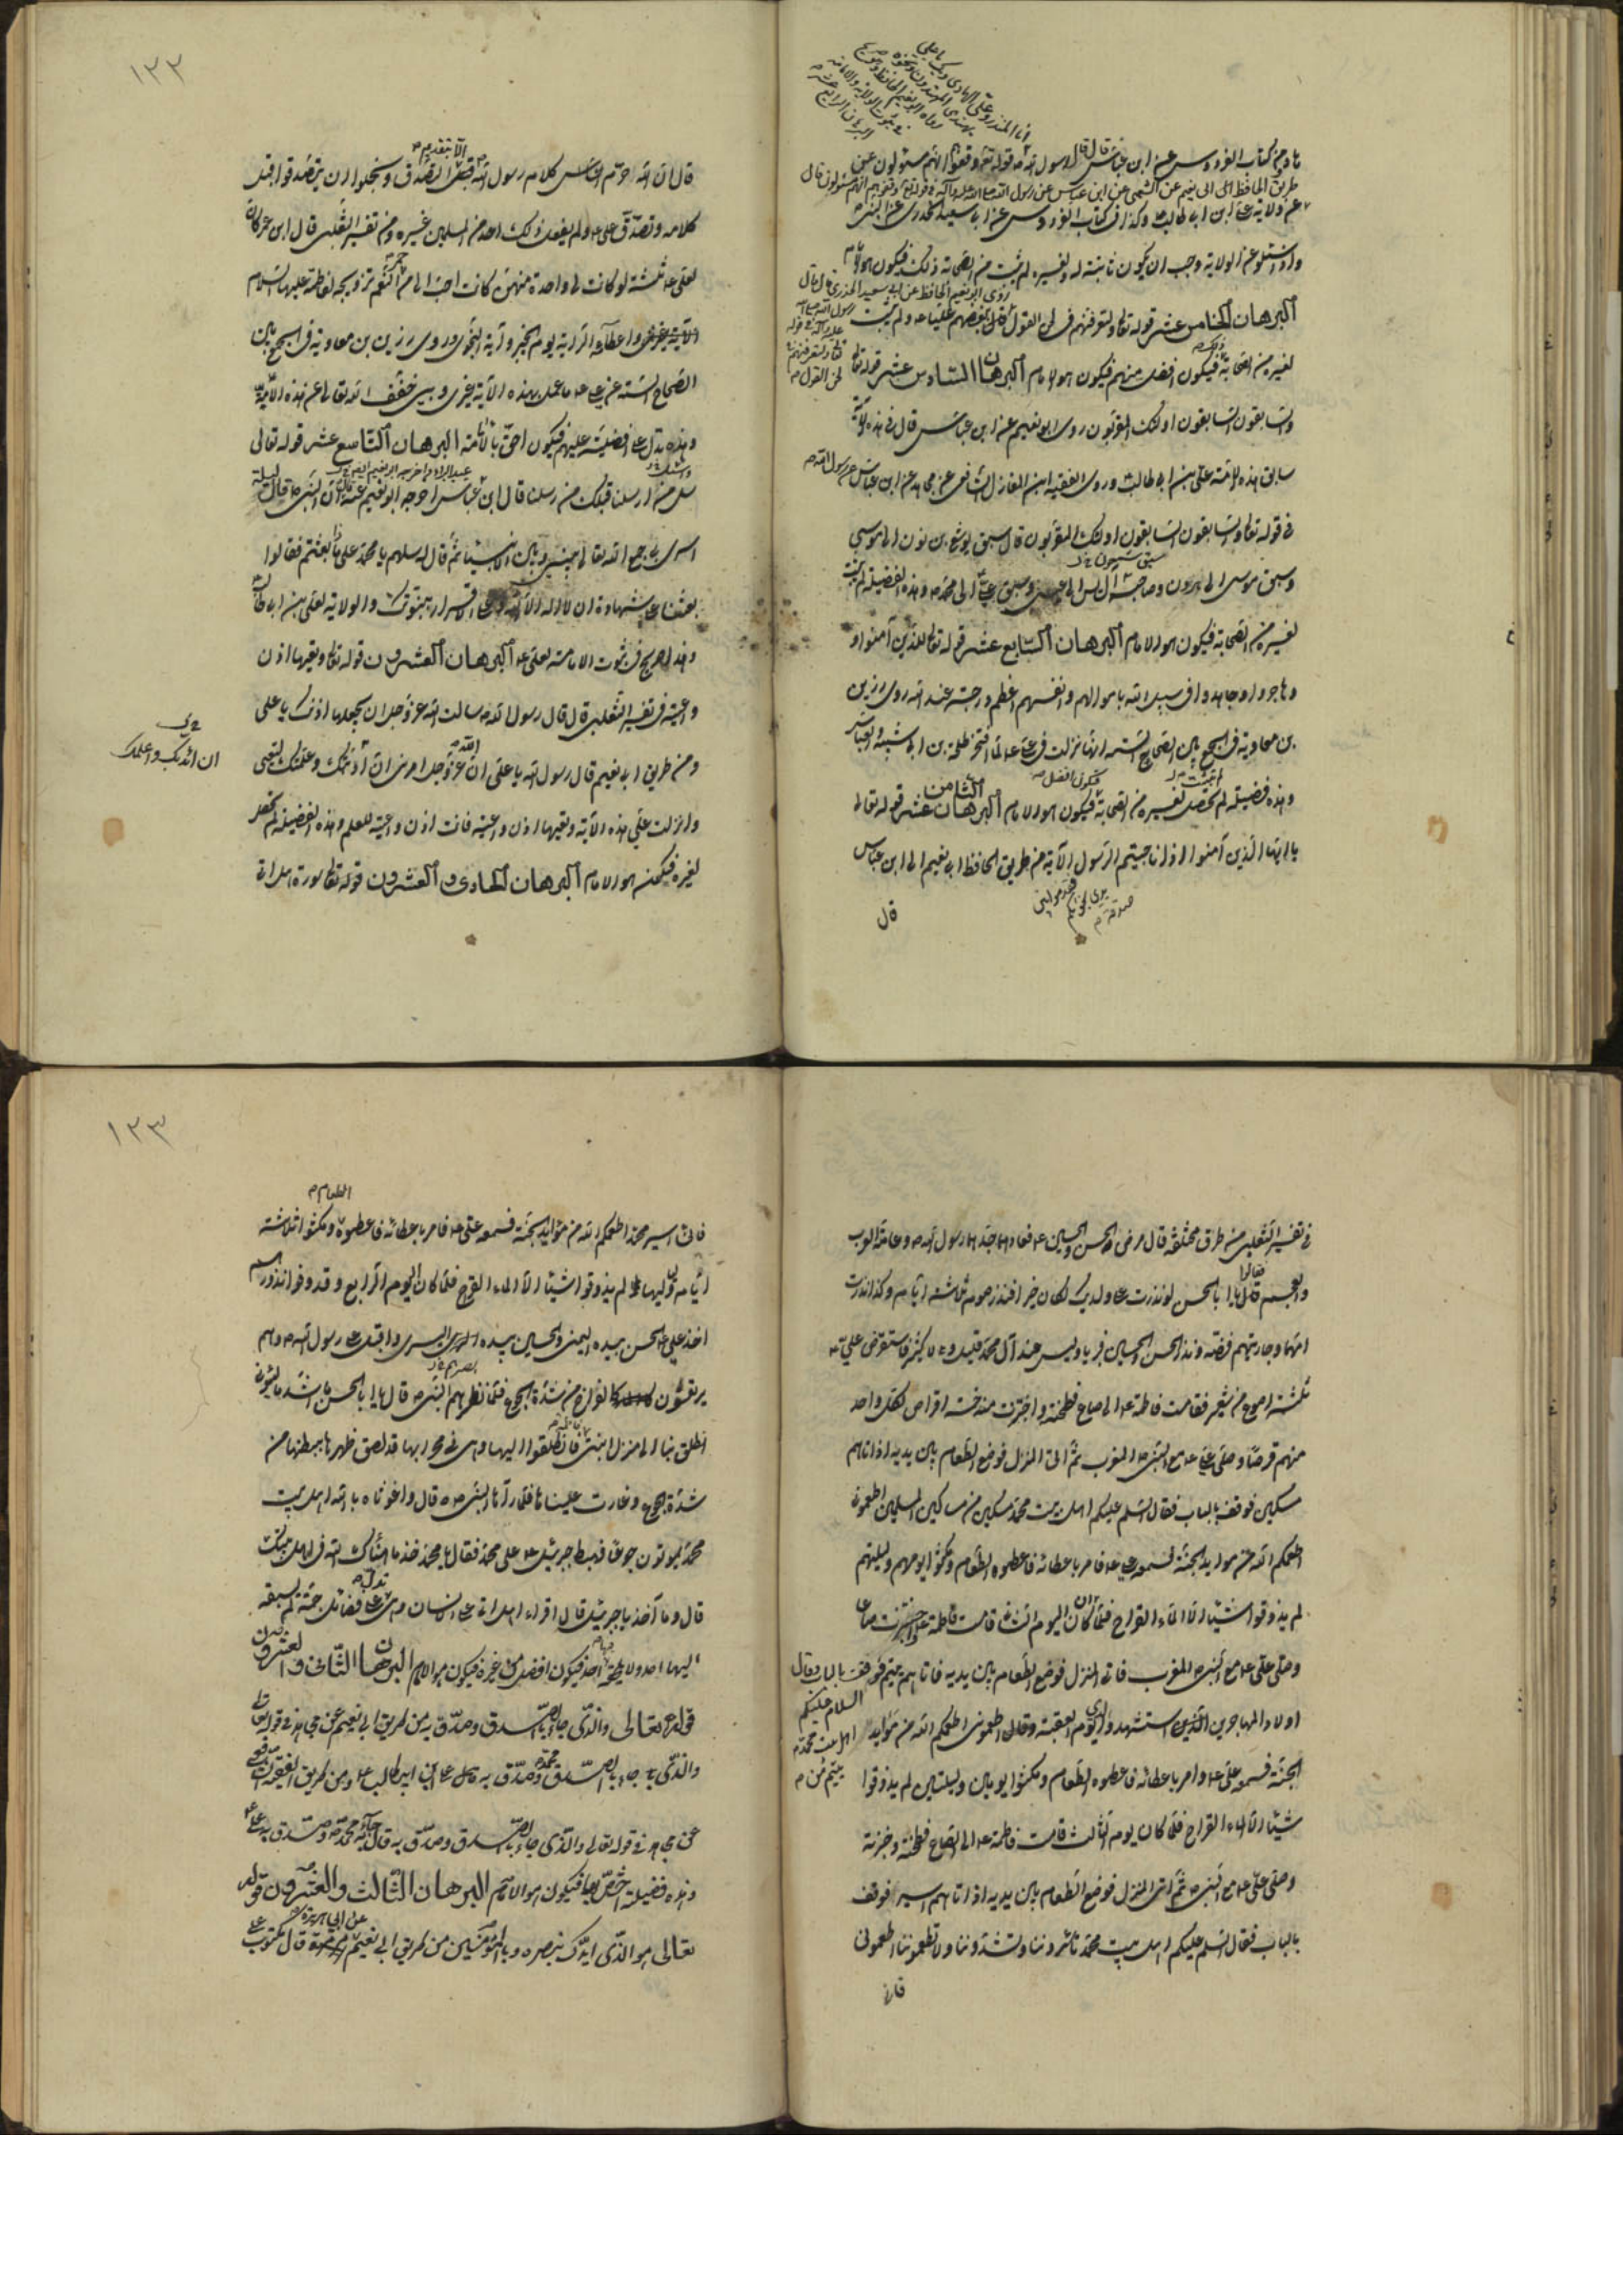 انا المنذر وعلي الهادي وبك يا علي
يهتدي المهتدون ونحوه
رواه ابو نعيم الحافظ وهو صريح
في ثبوت الولاية والامامة
البرهان الرابع عشر
من كتاب الفردوس عن ابن عباس قال قال رسول الله قوله تعالى وقفوهم انهم مسئولون عن
طريق الحافظ ابي نعيم عن الشعبي عن ابن عباس عن رسول الله صلى الله عليه وآله في قوله تعالى وقفوهم انهم مسئولون قال
عن ولاية علي ابن ابي طالب وكذا في كتاب الفردوس عن ابي سعيد الخدري عن النبي
واذا سئلوا عن الولاية وجب ان يكون ثابتة له ولغيره لم يثبت من الصحابة ذلك فيكون هو الامام
روى ابو نعيم الحافظ عن ابي سعيد الخدري قال
البرهان الخامس عشر قوله تعالى ولتعرفنهم في لحن القول قال ببغضهم عليا ولم يثبت
لغيره من الصحابة ذلك فيكون افضل منهم فيكون هو الامام البرهان السادس عشر قوله تعالى
في لحن القول
والسابقون السابقون اولئك المقربون روى ابو نعيم عن ابن عباس قال في هذه الآية
سابق هذه الامة علي بن ابي طالب وروى الفقيه ابن المغازلي الشافعي عن مجاهد عن ابن عباس عن رسول الله
في قوله تعالى والسابقون السابقون اولئك المقربون قال سبق يوشع بن نون الى موسى
وسبق موسى الى هرون وصاحب آل يس الى عيسى وسبق علي الى محمد وهذه الفضيلة لم يثبت
لغيره من الصحابة فيكون هو الامام البرهان السابع عشر قوله تعالى الذين آمنوا و
وهاجروا وجاهدوا في سبيل الله باموالهم وانفسهم اعظم درجة عند الله روى رزين
بن معاوية في الجمع بين الصحاح الستة انها نزلت في علي لما افتخر طلحة بن ابي شيبة والعباس
وهذه فضيلة لم تحصل لغيره من الصحابة فيكون افضل فيكون هو الامام البرهان الثامن عشر قوله تعالى
يا ايها الذين آمنوا اذا ناجيتم الرسول الآية من طريق الحافظ ابي نعيم الى ابن عباس
فقدموا بين يدي نجويكم صدقة
قال
١٢٢
الا بتقديم
قال ان الله حرم كلام رسول الله الا بتقديم الصدقة وبخلوا ان يتصدقوا قبل
كلامه وتصدق علي ولم يفعل ذلك احد من المسلمين غيره ومن تفسير الثعلبي قال ابن عمر كان
لعلي ثلثة لو كانت لي واحدة منهن كانت احب الي من حمر النعم تزويجه لفاطمة عليها السلام
واعطاه الراية يوم الخيبر وآية النجوى وروى رزين بن معاوية في الجمع بين
الصحاح الستة عن علي ما عمل بهذه الآية غيري وبي خفف الله تعالى عن هذه الامة
وهذه يدل على افضليته عليهم فيكون احق بالامامة البرهان التاسع عشر قوله تعالى
عبد البر واخرجه ابو نعيم ايضا
وسئل من ارسلنا قبلك من رسلنا قال ابن عباس اخرجه ابو نعيم عنه قال ان النبي قال ليلة
اسري به جمع الله تعالى بينه وبين الانبياء ثم قال له سلهم يا محمد على ما بعثتم فقالوا
بعثنا على شهادة ان لا اله الا الله وعلى الاقرار بنبوتك والولاية لعلي بن ابي طالب
وهذا صريح في ثبوت الامامة لعلي البرهان العشرون قوله تعالى وتعيها اذن
واعية في تفسير الثعلبي قال قال رسول الله سالت الله عز وجل ان يجعلها اذنك يا علي
ان ادنيك واعلمك
ومن طريق ابي نعيم قال رسول الله يا علي ان الله عز وجل امرني ان ادنيك وعلمك لتعي
وانزلت علي هذه الآية وتعيها اذن واعية فانت اذن واعية للعلم وهذه الفضيلة لم تحصل
لغيره فيكون هو الامام البرهان الحادي والعشرون قوله تعالى سورة هل اتى
في تفسير الثعلبي من طرق مختلفة قال مرض الحسن والحسين فعادهما جدهما رسول الله وعامة العرب
فقالوا يا ابا الحسن لو نذرت على ولديك لكان خيرا فنذر صوم ثلاثة ايام وكذا نذرت
امهما وجاريتهم فضة ونذر الحسن والحسين فبريا وليس عند آل محمد قليل ولا كثير فاستقرض علي
ثلثة اصوع من شعير فقامت فاطمة الى صاع فطحنته واختبزت منه خمسة اقراص لكل واحد
منهم قرصا وصلى علي مع النبي المغرب ثم اتى المنزل فوضع الطعام بين يديه اذ اتاهم
مسكين فوقف بالباب فقال السلم عليكم اهل بيت محمد مسكين من مساكين المسلمين اطعموني
اطعمكم الله من موايد الجنة فسمعه علي فامر باعطائه فاعطوه الطعام ومكثوا يومهم وليلتهم
لم يذوقوا شيئا الا الماء القراح فلما ان كان اليوم الثاني قامت فاطمة واختبزت صاعا
وصلى علي مع النبي المغرب فاتى المنزل فوضع الطعام بين يديه فاتاهم يتيم فوقف بالباب وقال
السلام عليكم
اهل بيت محمد
يتيم من
اولاد المهاجرين استشهد والدي يوم العقبة وقال اطعموني اطعمكم الله من موايد
الجنة فسمعه علي وامر باعطائه فاعطوه الطعام ومكثوا يومين وليلتين لم يذوقوا
شيئا الا الماء القراح فلما كان يوم الثالث قامت فاطمة الى الصاع فطحنته وخبزته
وصلى علي مع النبي ثم اتى المنزل فوضع الطعام بين يديه اذ اتاهم اسير فوقف
بالباب فقال السلم عليكم اهل بيت محمد تاسروننا وتشدوننا ولا تطعموننا اطعموني
فاني
١٢٣
الطعام
فاني اسير محمد اطعمكم الله من موايد الجنة فسمعه علي فامر باعطائه فاعطوه ومكثوا ثلاثة
ايام ولياليها لم يذوقوا شيئا الا الماء القراح فلما كان اليوم الرابع وقد وفوا نذورهم
اخذ علي الحسن بيده اليمنى والحسين بيده اليسرى واقبل على رسول الله وهم
يرتعشون كالفراخ من شدة الجوع فلما نظرهم النبي قال يا ابا الحسن ما اشد ما يسوءني
انطلق بنا الى منزل ابنتي فانطلقوا اليها وهي في محرابها قد لصق ظهرها ببطنها من
شدة الجوع وغارت عيناها فلما رآها النبي قال واغوثاه بالله اهل بيت
محمد يموتون جوعا فهبط جبرئيل على محمد فقال يا محمد خذ ما هناك الله في اهل بيتك
قال وما آخذ يا جبرئيل قال اقراء هل اتى على الانسان وهي تدل على فضائل جمة لم يسبقه
اليها احد ولا يلحقه احد فيكون افضل من غيره فيكون هو الامام البرهان الثاني والعشرون
قوله تعالى والذي جاء بالصدق وصدق به من طريق ابي نعيم عن مجاهد في قوله تعالى
والذي جاء بالصدق محمد وصدق به قال علي ابن ابي طالب ومن طريق الفقيه الشافعي
عن مجاهد في قوله تعالى والذي جاء بالصدق وصدق به قال جاء به محمد وصدق به علي
وهذه فضيلة اختص بها فيكون هو الامام البرهان الثالث والعشرون قوله
تعالى هو الذي ايدك بنصره وبالمؤمنين من طريق ابي نعيم عن ابي هريرة قال مكتوب على